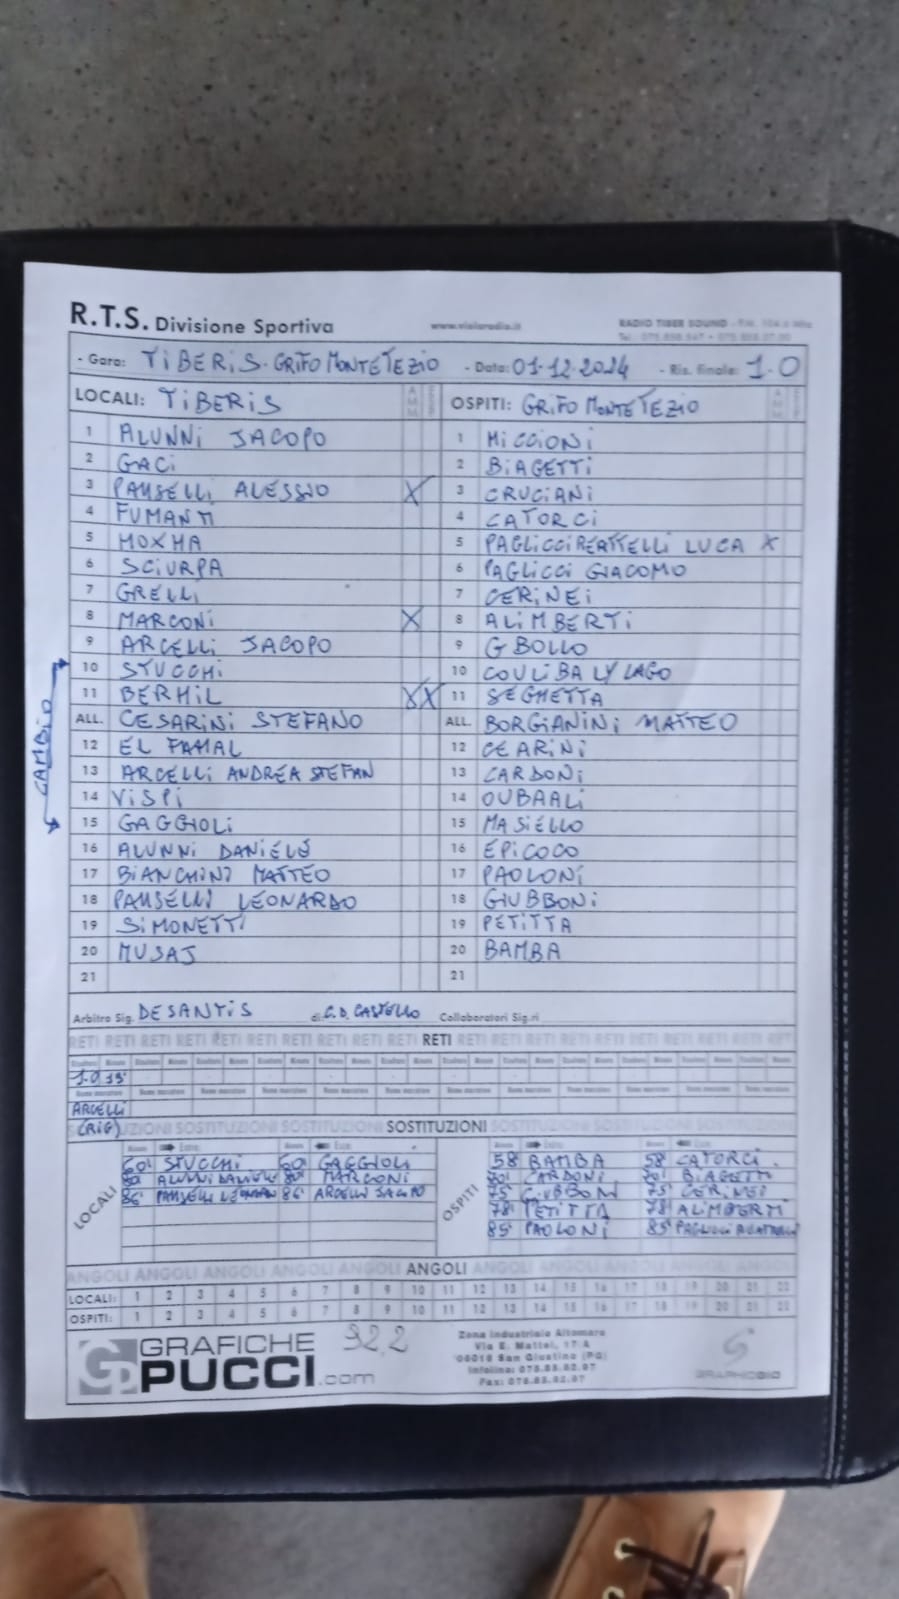 R.T.S. Divisione Sportiva www.violaradio.it RADIO TIBER SOUND
- Gara: TIBERIS-GRIFO MONTETEZIO - Data: 01-12-2024 - Ris. finale: 1-0
LOCALI: TIBERIS
1 ALUNNI JACOPO
2 GACI
3 PAUSELLI ALESSIO X
4 FUMANTI
5 HOXHA
6 SCIURPA
7 GRELLI
8 MARCONI X
9 ARCELLI JACOPO
10 STUCCHI
11 BERHIL XX
ALL. CESARINI STEFANO
12 EL FAMAL
13 ARCELLI ANDREA STEFAN
14 VISPI
15 GAGGIOLI
16 ALUNNI DANIELE
17 BIANCHINI MATTEO
18 PAUSELLI LEONARDO
19 SIMONETTI
20 MUSAJ
21
CAMBIO
OSPITI: GRIFO MONTETEZIO
1 MICCIONI
2 BIAGETTI
3 CRUCIANI
4 CATORCI
5 LUCA X
6 PAGLICCI GIACOMO
7 CERINEI
8 ALIMBERTI
9 GBOLLO
10 COULIBALY LAGO
11 SEGHETTA
ALL. BORGIANINI MATTEO
12 CEARINI
13 CARDONI
14 OUBAALI
15 MASIELLO
16 EPICOCO
17 PAOLONI
18 GIUBBONI
19 PETITTA
20 BAMBA
21
Arbitro Sig. DESANTIS di C.D. CASTELLO Collaboratori Sig.ri
RETI RETI RETI RETI RETI RETI RETI RETI RETI RETI RETI RETI RETI RETI RETI RETI RETI RETI RETI RETI
1-0
ARCELLI
(RIG)
SOSTITUZIONI SOSTITUZIONI SOSTITUZIONI
LOCALI
60' STUCCHI 60' GAGGIOLI
80' ALUNNI DANIELE 80' MARCONI
86' PAUSELLI LEONARDO 86' ARCELLI JACOPO
OSPITI
58' BAMBA 58' CATORCI
CARDONI BIAGETTI
75' GIUBBONI 75' CERINEI
78' PETITTA 78' ALIMBERTI
85' PAOLONI 85'
ANGOLI ANGOLI ANGOLI ANGOLI ANGOLI ANGOLI ANGOLI ANGOLI ANGOLI ANGOLI ANGOLI
LOCALI: 1 2 3 4 5 6 7 8 9 10 11 12 13 14 15 16 17 18 19 20 21 22
OSPITI: 1 2 3 4 5 6 7 8 9 10 11 12 13 14 15 16 17 18 19 20 21 22
GRAFICHE
PUCCI.com
Zona Industriale Altomare
Via E. Mattei, 17/A
06016 San Giustino (PG)